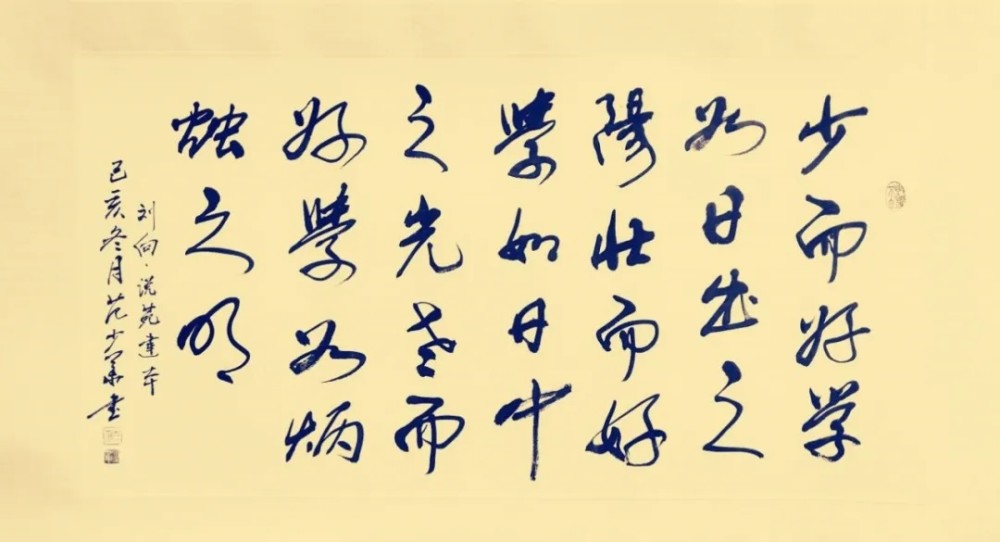 少而好学
如日出之
陽壮而好
學如日中
之光老而
好學如炳
烛之明
刘向·说苑建本
己亥冬月范少書